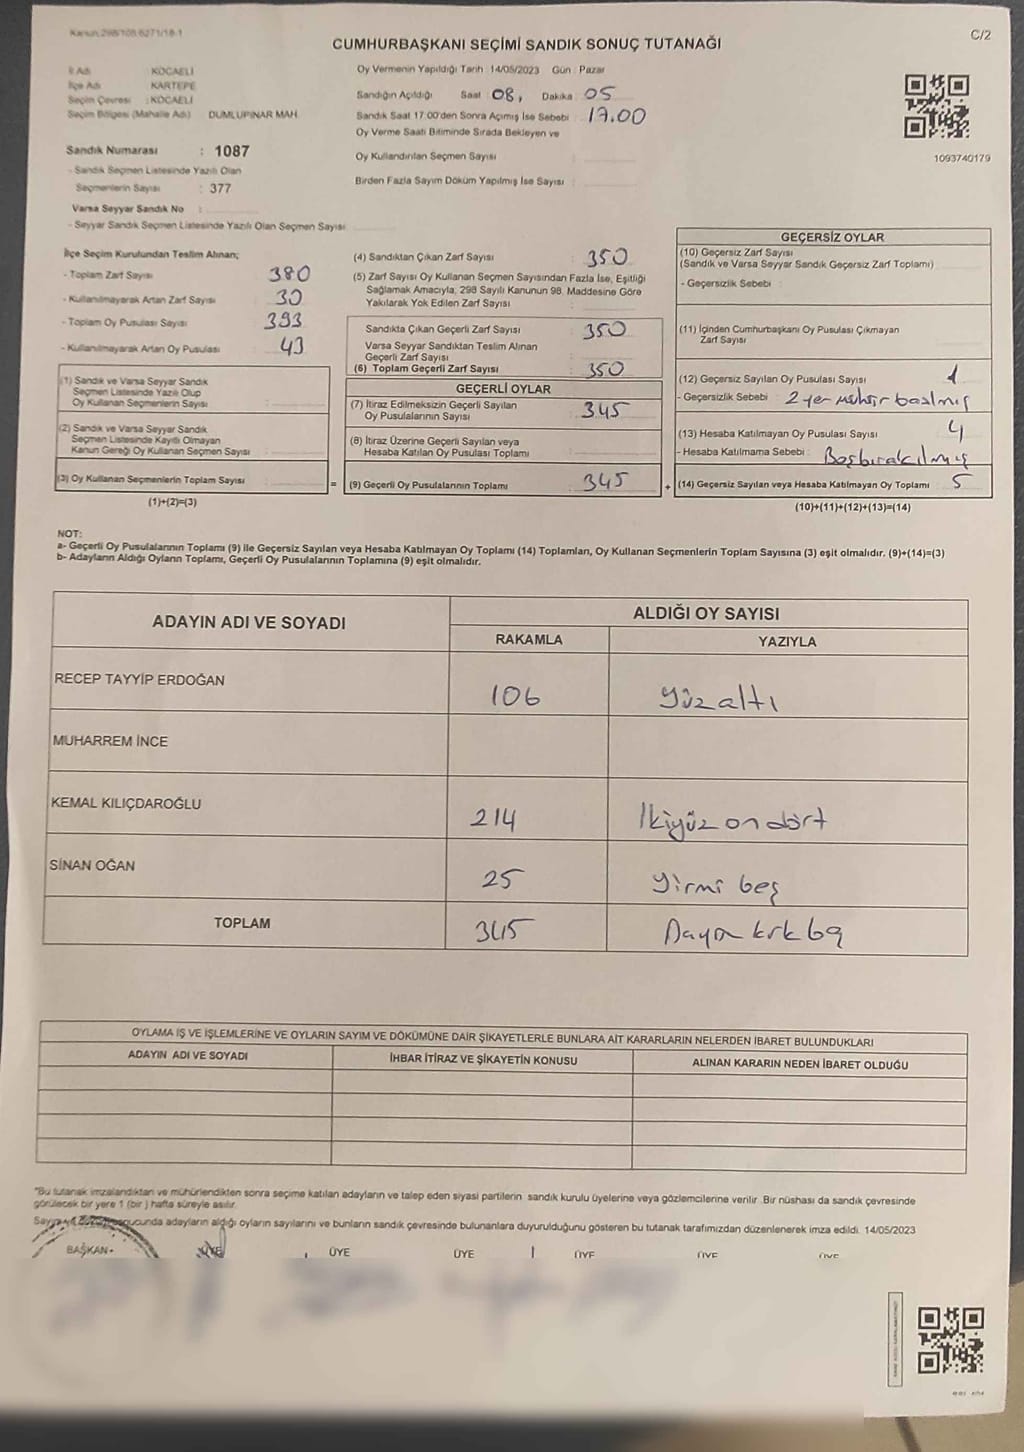 Kanun:298/108.6271/18-1
C/2
CUMHURBAŞKANI SEÇİMİ SANDIK SONUÇ TUTANAĞI
İl Adı : KOCAELİ
İlçe Adı : KARTEPE
Seçim Çevresi : KOCAELİ
Seçim Bölgesi (Mahalle Adı) DUMLUPINAR MAH.
Sandık Numarası : 1087
- Sandık Seçmen Listesinde Yazılı Olan
Seçmenlerin Sayısı : 377
Varsa Seyyar Sandık No :
- Seyyar Sandık Seçmen Listesinde Yazılı Olan Seçmen Sayısı
Oy Vermenin Yapıldığı Tarih :14/05/2023 Gün : Pazar
Sandığın Açıldığı Saat : 08, Dakika : 05
Sandık Saat 17:00'den Sonra Açımış İse Sebebi : 17.00
Oy Verme Saati Bitiminde Sırada Bekleyen ve
Oy Kullandırılan Seçmen Sayısı :
Birden Fazla Sayım Döküm Yapılmış İse Sayısı :
1093740179
İlçe Seçim Kurulundan Teslim Alınan;
- Toplam Zarf Sayısı : 380
- Kullanılmayarak Artan Zarf Sayısı : 30
- Toplam Oy Pusulası Sayısı : 393
- Kullanılmayarak Artan Oy Pusulası : 43
(1) Sandık ve Varsa Seyyar Sandık
Seçmen Listesinde Yazılı Olup
Oy Kullanan Seçmenlerin Sayısı :
(2) Sandık ve Varsa Seyyar Sandık
Seçmen Listesinde Kayıtlı Olmayan
Kanun Gereği Oy Kullanan Seçmen Sayısı :
(3) Oy Kullanan Seçmenlerin Toplam Sayısı :
(1)+(2)=(3)
=
(4) Sandıktan Çıkan Zarf Sayısı : 350
(5) Zarf Sayısı Oy Kullanan Seçmen Sayısından Fazla İse, Eşitliği
Sağlamak Amacıyla, 298 Sayılı Kanunun 98. Maddesine Göre
Yakılarak Yok Edilen Zarf Sayısı :
Sandıkta Çıkan Geçerli Zarf Sayısı : 350
Varsa Seyyar Sandıktan Teslim Alınan
Geçerli Zarf Sayısı :
(6) Toplam Geçerli Zarf Sayısı : 350
GEÇERLİ OYLAR
(7) İtiraz Edilmeksizin Geçerli Sayılan
Oy Pusulalarının Sayısı : 345
(8) İtiraz Üzerine Geçerli Sayılan veya
Hesaba Katılan Oy Pusulası Toplamı :
(9) Geçerli Oy Pusulalarının Toplamı : 345
+
GEÇERSİZ OYLAR
(10) Geçersiz Zarf Sayısı
(Sandık ve Varsa Seyyar Sandık Geçersiz Zarf Toplamı)
- Geçersizlik Sebebi :
(11) İçinden Cumhurbaşkanı Oy Pusulası Çıkmayan
Zarf Sayısı :
(12) Geçersiz Sayılan Oy Pusulası Sayısı : 1
- Geçersizlik Sebebi : 2 yer mühür basılmış
(13) Hesaba Katılmayan Oy Pusulası Sayısı : 4
- Hesaba Katılmama Sebebi : Boş bırakılmış
(14) Geçersiz Sayılan veya Hesaba Katılmayan Oy Toplamı : 5
(10)+(11)+(12)+(13)=(14)
NOT:
a- Geçerli Oy Pusulalarının Toplamı (9) ile Geçersiz Sayılan veya Hesaba Katılmayan Oy Toplamı (14) Toplamları, Oy Kullanan Seçmenlerin Toplam Sayısına (3) eşit olmalıdır. (9)+(14)=(3)
b- Adayların Aldığı Oyların Toplamı, Geçerli Oy Pusulalarının Toplamına (9) eşit olmalıdır.
ADAYIN ADI VE SOYADI
ALDIĞI OY SAYISI
RAKAMLA YAZIYLA
RECEP TAYYİP ERDOĞAN 106 yüz altı
MUHARREM İNCE
KEMAL KILIÇDAROĞLU 214 İkiyüz on dört
SİNAN OĞAN 25 yirmi beş
TOPLAM 345
OYLAMA İŞ VE İŞLEMLERİNE VE OYLARIN SAYIM VE DÖKÜMÜNE DAİR ŞİKAYETLERLE BUNLARA AİT KARARLARIN NELERDEN İBARET BULUNDUKLARI
ADAYIN ADI VE SOYADI İHBAR İTİRAZ VE ŞİKAYETİN KONUSU ALINAN KARARIN NEDEN İBARET OLDUĞU
*Bu tutanak imzalandıktan ve mühürlendikten sonra seçime katılan adayların ve talep eden siyasi partilerin sandık kurulu üyelerine veya gözlemcilerine verilir. Bir nüshası da sandık çevresinde
görülecek bir yere 1 (bir ) hafta süreyle asılır.
adayların aldığı oyların sayılarını ve bunların sandık çevresinde bulunanlara duyurulduğunu gösteren bu tutanak tarafımızdan düzenlenerek imza edildi. 14/05/2023
BAŞKAN ÜYE ÜYE ÜYE ÜYE ÜYE ÜYE